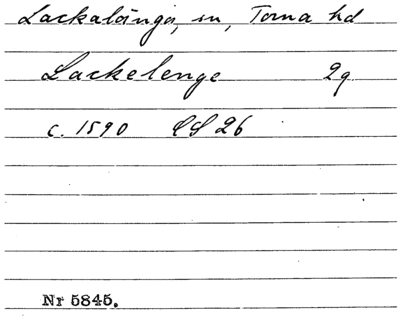 Lackalänga, sn, Torna hd
Lackelenge 2g
c. 1590 LS 26
Nr 5845.